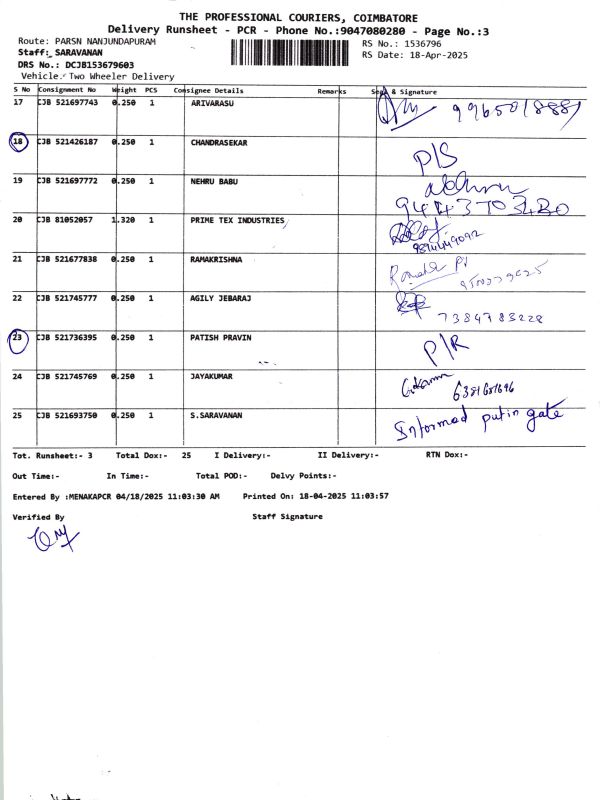 THE PROFESSIONAL COURIERS, COIMBATORE
Delivery Runsheet - PCR - Phone No.:9047080280 - Page No.:3
Route: PARSN NANJUNDAPURAM RS No.: 1536796
Staff: SARAVANAN RS Date: 18-Apr-2025
DRS No.: DCJB153679603
Vehicle: Two Wheeler Delivery
S No Consignment No Weight PCS Consignee Details Remarks Seal & Signature
17 CJB 521697743 0.250 1 ARIVARASU 9965018881
18 CJB 521426187 0.250 1 CHANDRASEKAR P/S
19 CJB 521697772 0.250 1 NEHRU BABU
9443703420
20 CJB 81052057 1.320 1 PRIME TEX INDUSTRIES
21 CJB 521677838 0.250 1 RAMAKRISHNA
22 CJB 521745777 0.250 1 AGILY JEBARAJ
7384783228
23 CJB 521736395 0.250 1 PATISH PRAVIN P/R
24 CJB 521745769 0.250 1 JAYAKUMAR
6381681696
25 CJB 521693750 0.250 1 S.SARAVANAN Informed put in gate
Tot. Runsheet:- 3 Total Dox:- 25 I Delivery:- II Delivery:- RTN Dox:-
Out Time:- In Time:- Total POD:- Delvy Points:-
Entered By :MENAKAPCR 04/18/2025 11:03:30 AM Printed On: 18-04-2025 11:03:57
Verified By Staff Signature